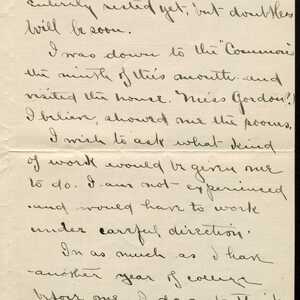 entirely rested yet, but doubtless
will be soon.
I was down to the "Commons"
the ninth of this month and
visited the house. "Miss Gordon",
I believe, showed me the rooms.
I wish to ask what kind
of work would be given me
to do. I am not experienced
and would have to work
under careful direction.
In as much as I have
another year of college
before me, I do